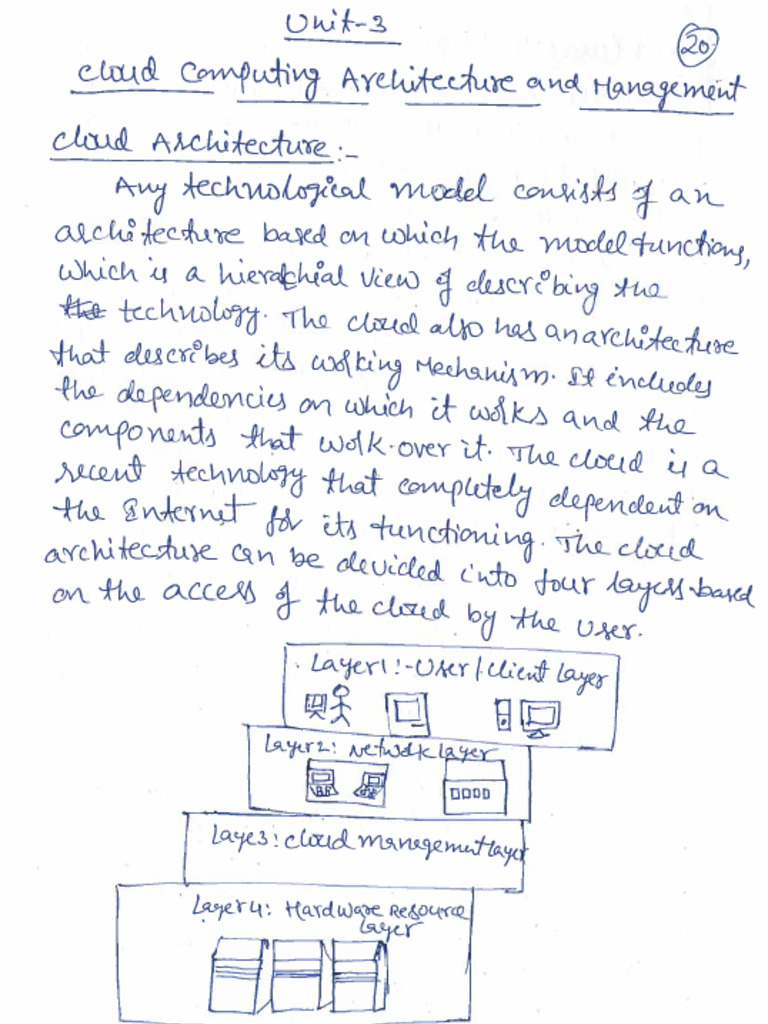 Unit-3
20
Cloud Computing Architecture and Management
Cloud Architecture:-
Any technological model consists of an
architecture based on which the model functions,
which is a hierarchial view of describing the
the technology. The cloud also has an architecture
that describes its working Mechanism. It includes
the dependencies on which it works and the
components that work over it. The cloud is a
recent technology that completely dependent on
the Internet for its functioning. The cloud
architecture can be devided into four layers based
on the access of the cloud by the user.
Layer1:-User/client layer
Layer2: Network layer
Laye3: cloud management layer
Layer4: Hardware Resource
layer